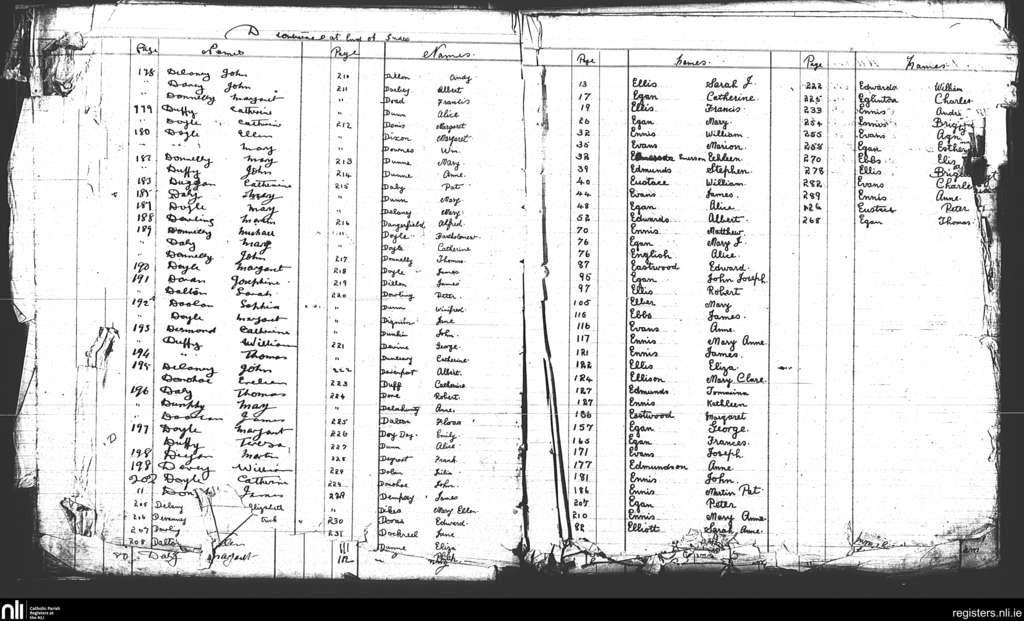 D continued at End of Index
Page Names Page Names
178 Delaney John
" Darcy John
" Donnelly Margaret
179 Duffy Catherine
" Doyle Catherine
180 Doyle Ellen
" " Mary
182 Donnelly May
" Duffy John
183 Duggan Catherine
185 Daly Mary
187 Doyle May
188 Dowling Martin
189 Donnelly Michael
" Daly Mary
" Donnelly John
190 Doyle Margaret
191 Doran Josephine
" Dalton Sarah
192 Doolan Sophia
" Doyle Margaret
193 Desmond Catherine
" Duffy William
194 " Thomas
195 Delaney John
" Donohoe Eveleen
196 Daly Thomas
" Dunphy May
" James
197 Doyle Margaret
" Duffy Teresa
198 Martin
198 Devey William
202 Doyle Catherine
" James
205 Delany Elizabeth
206
207 Darby
208 Dalton
80 Daly Margaret
210 Dillon Andy
211 Albert
" Dowd Francis
" Dunn Alice
212 Denis Margaret
" Dixon Margaret
" Downes Wm.
213 Dunne Mary
214 Dunne Anne.
215 Daly Pat
" Dunn Mary
" Delaney Mary.
216 Dangerfield Alfred
" Doyle Bartholomew
" Doyle Catherine
217 Donnelly Thomas
218 Doyle James
219 Dillon James
220 Dowling Peter.
" Dunn Winifred
" Dignam Jane
" Durkin John.
221 Devine George.
" Catherine
222 Davenport Albert.
223 Duff Catherine
224 Dore Robert
" Delahunty Anne.
225 Dalton
226 Day Emily
227 Dunn Alice
228 Frank
229 Dolan Julia
229 Donohoe John.
229 Dempsey James
" Dikes Mary Ellen
230 Doran Edward.
231 Dockrell Jane
111 Dunne Eliza
112 "
Page Names Page Names
13 Ellis Sarah J.
17 Egan Catherine
19 Ellis Francis
26 Egan Mary.
32 Ennis William.
35 Evans Marion.
38 Emerson Eileen
39 Edmunds Stephen
40 Eustace William
44 Evans James.
48 Egan Alice
52 Edwards Albert.
70 Ennis Matthew.
76 Egan Mary J.
76 English Alice.
87 Eastwood Edward.
95 Egan John Joseph
97 Ellis Robert
105 Elber Mary
116 Ebbs James.
116 Evans Anne.
117 Ennis Mary Anne
121 Ennis James.
122 Ellis Eliza
124 Ellison Mary Clare
127 Edmunds Tomasina
127 Ennis Kathleen
136 Eastwood Margaret
157 Egan George.
165 Egan Frances.
171 Evans Joseph.
177 Edmundson Anne
181 Ennis John.
186 Ennis Martin Pat
207 Egan Peter
210 Ennis Mary Anne
82 Elliott Sarah Anne.
222 Edwards William
225 Eglinton Charles
233 Ennis
254 Ennis
255 Evans
258 Egan Esther
270 Ebbs
278 Ellis
282 Evans Charles
289 Ennis Anne.
Eustace Peter
268 Egan Thomas
nli Catholic Parish
Registers at
the NLI
registers.nli.ie